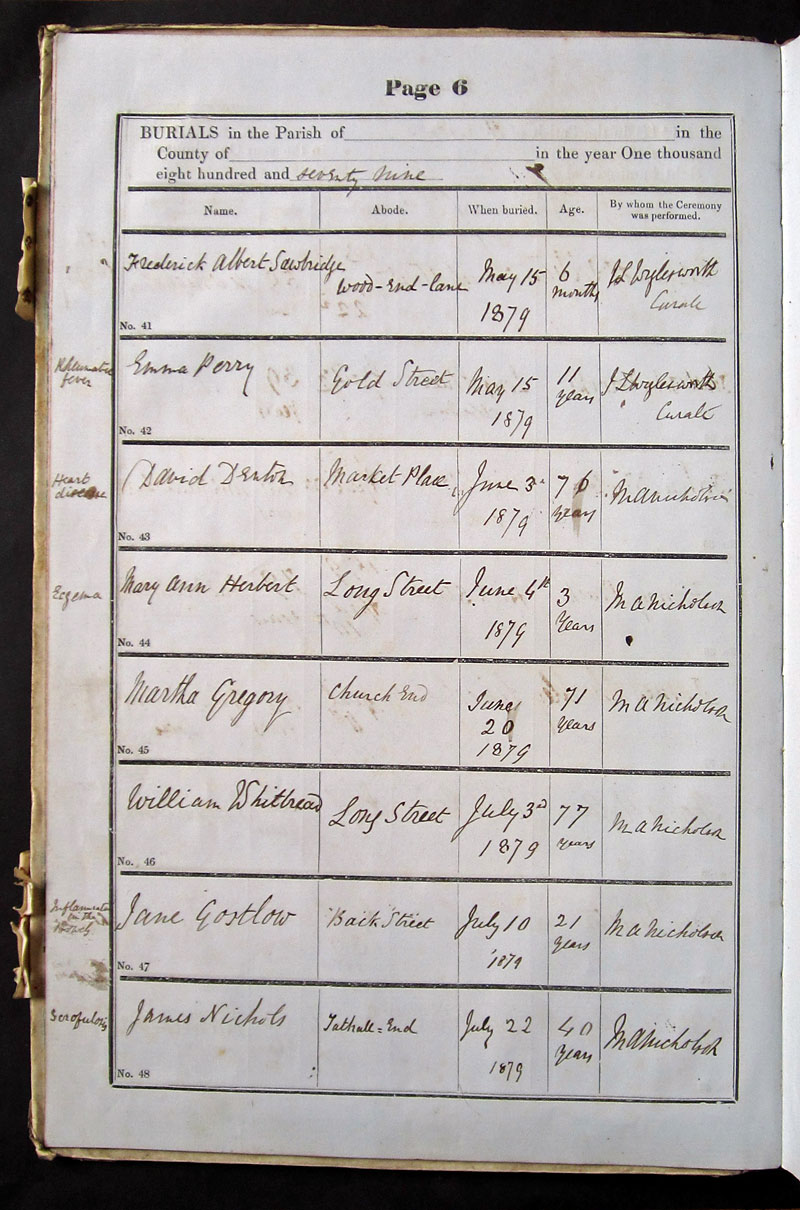 Page 6
BURIALS in the Parish of in the
County of in the year One thousand
eight hundred and seventy nine
Name. Abode. When buried. Age. By whom the Ceremony
was performed.
Frederick Albert Sawbridge Wood-End-Lane May 15 6
1879 months
Curate
No. 41
Rheumatic
fever
Emma Perry Gold Street May 15 11
1879 years
Curate
No. 42
Heart
disease
David Denton Market Place June 3 76 M A Nicholson
1879 years
No. 43
Eczema
Mary Ann Herbert Long Street June 4th 3 M A Nicholson
1879 Years
No. 44
Martha Gregory Church End June 71 M A Nicholson
20 years
1879
No. 45
William Whitbread Long Street July 3d 77 M A Nicholson
1879 years
No. 46
in the
Jane Gostlow Back Street July 10 21 M A Nicholson
1879 years
No. 47
James Nichols Tathall=End July 22 40 M A Nicholson
1879 Years
No. 48